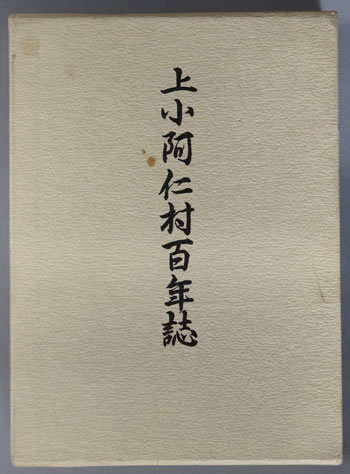 上小阿仁村百年誌